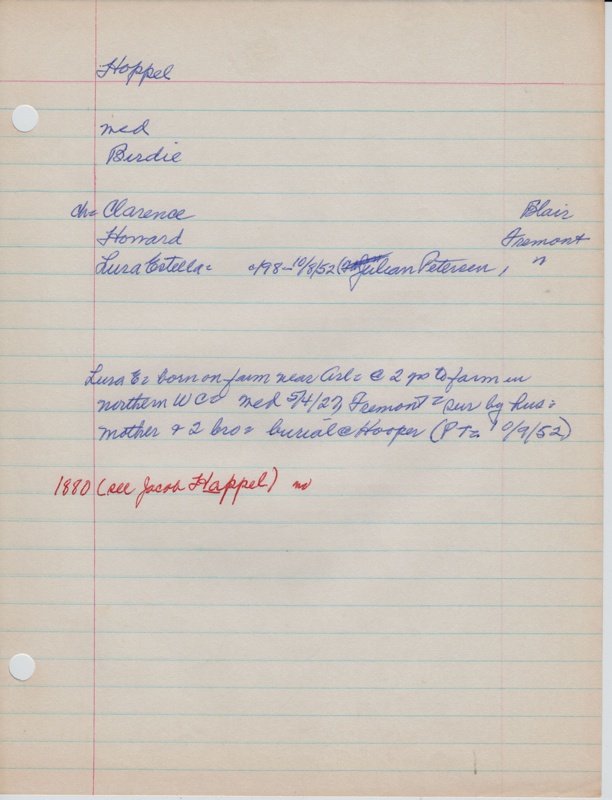 Hoppel
med
Birdie
ch= Clarence Blair
Howard Fremont
Lura Estella= c/98-10/8/52 ( Julian Petersen, "
Lura E= born on farm near Arl= @ 2 yrs to farm in
northern W Co= med 5/4/27, Fremont= sur by hus=
mother & 2 bro= burial @ Hooper (PT= 10/9/52)
1880 (see Jacob Happel) no